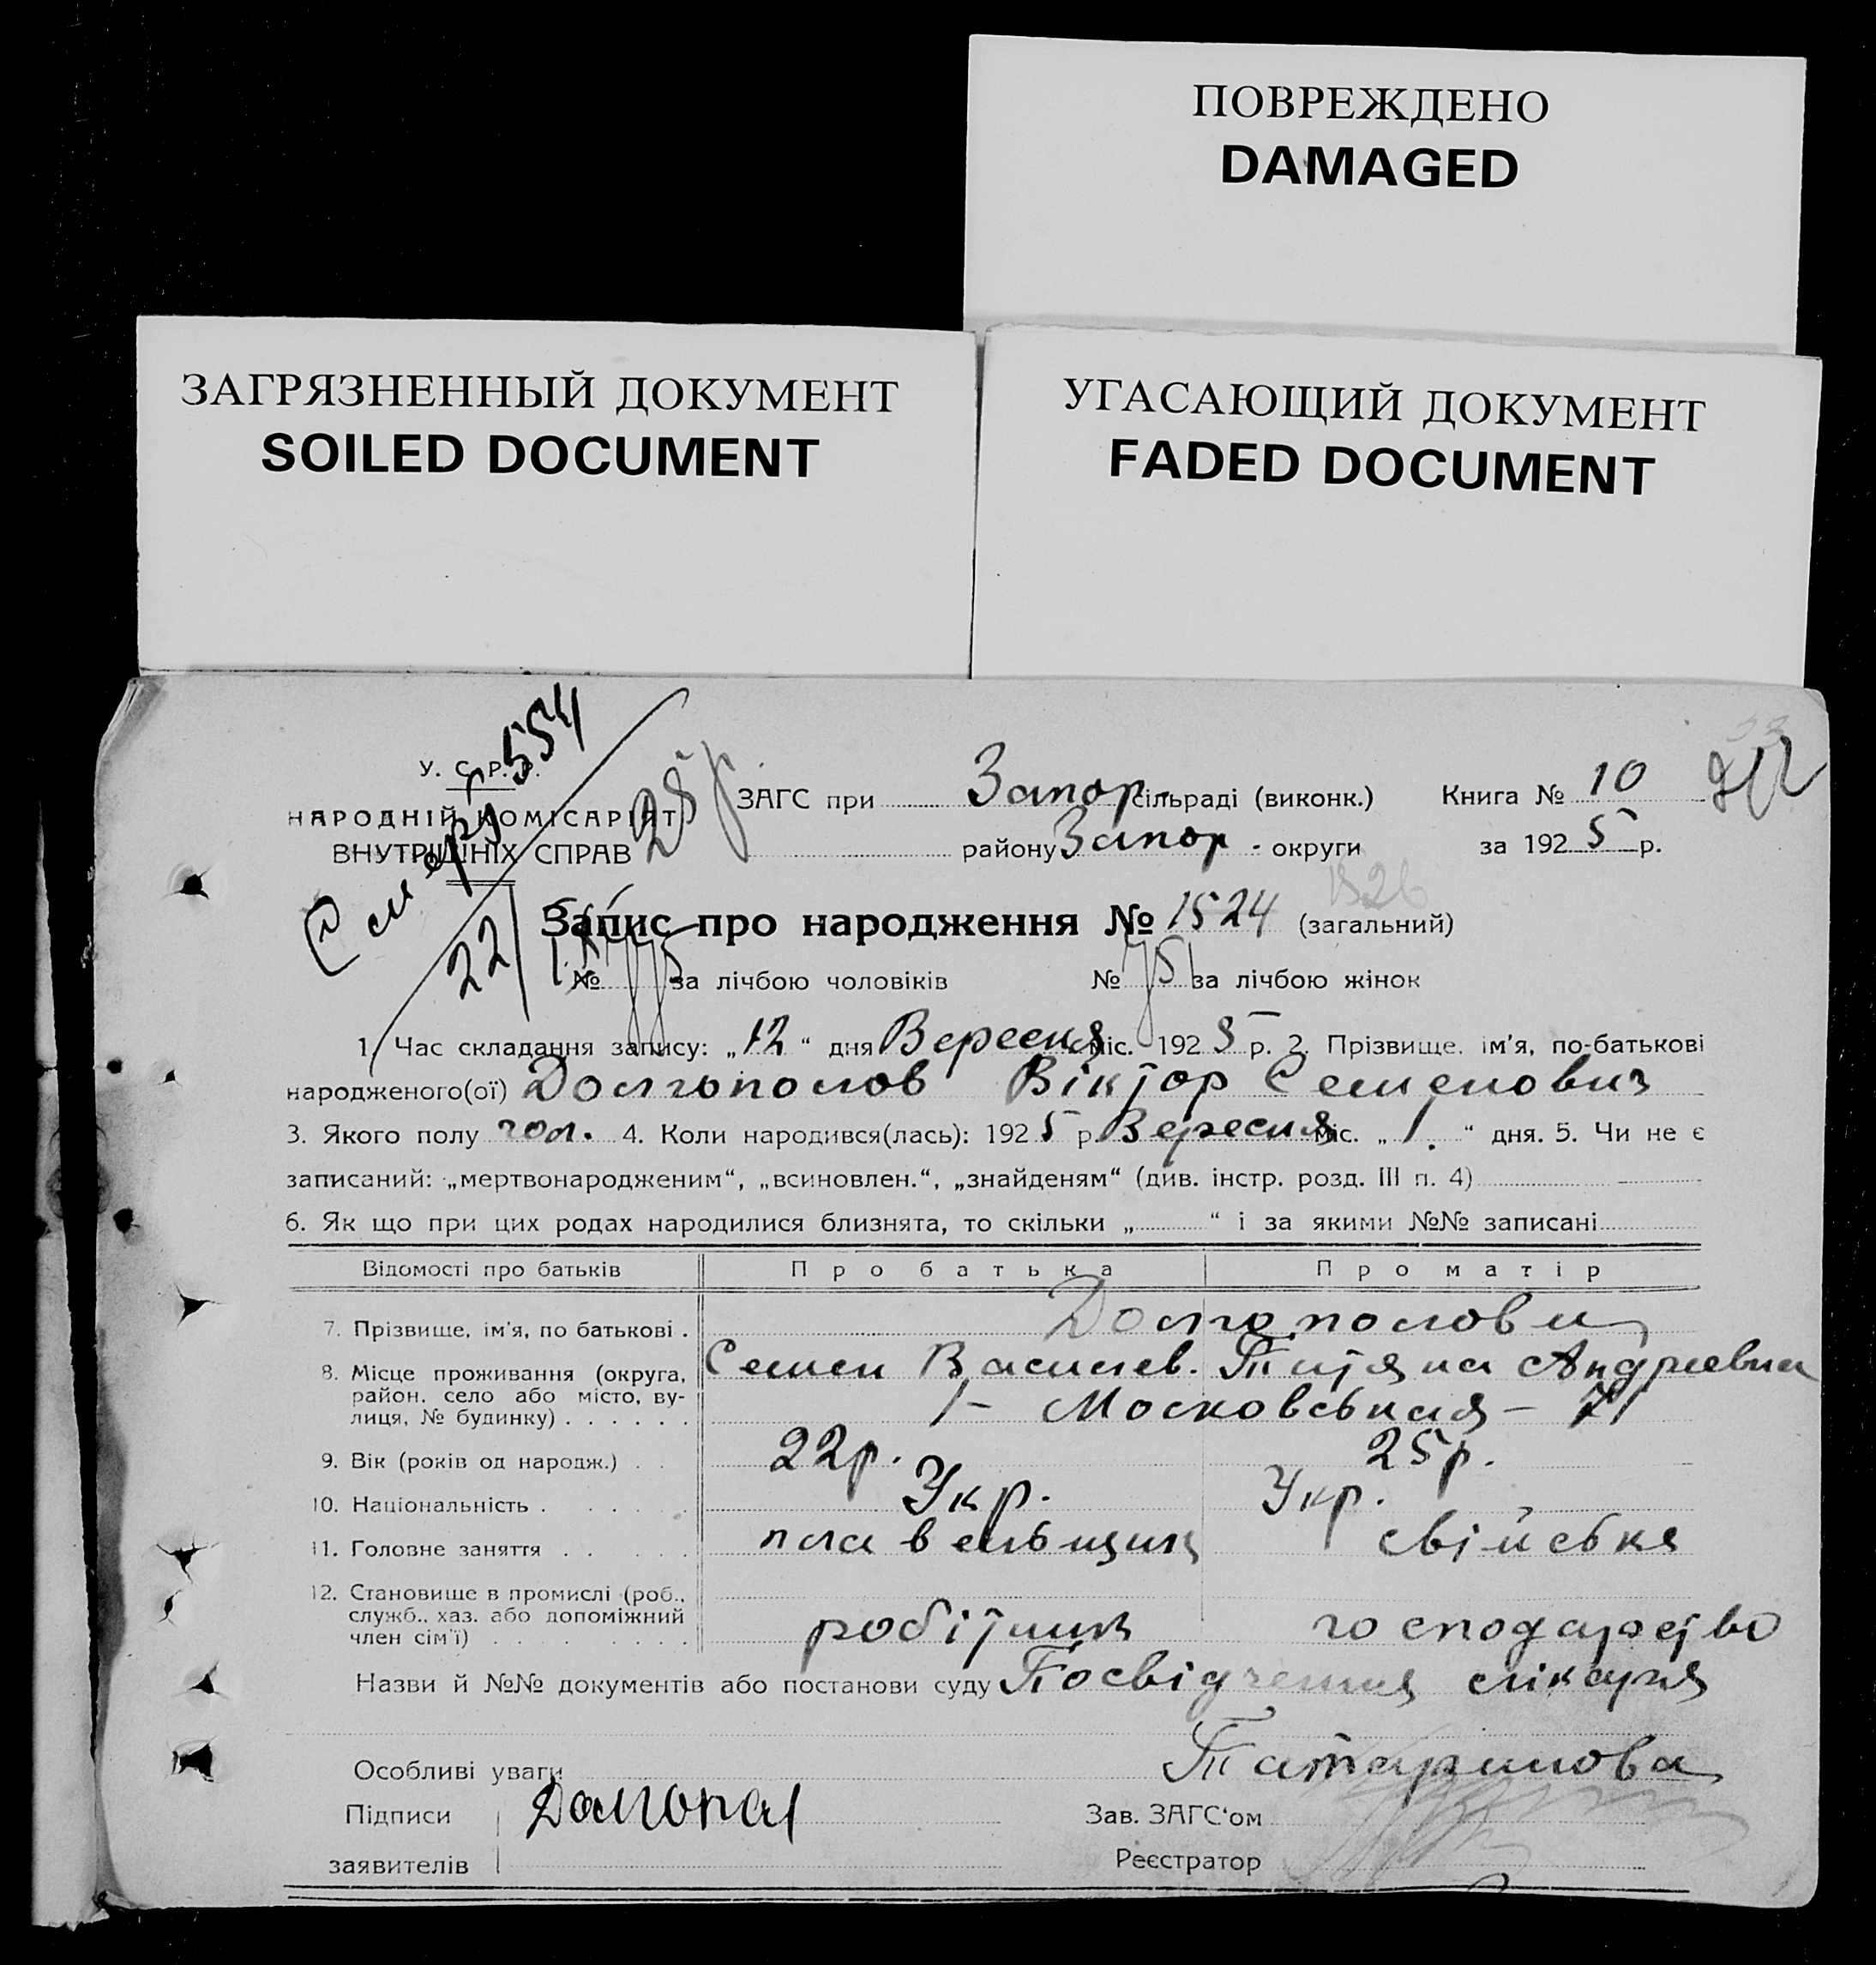 ПОВРЕЖДЕНО
DAMAGED
ЗАГРЯЗНЕННЫЙ ДОКУМЕНТ
SOILED DOCUMENT
УГАСАЮЩИЙ ДОКУМЕНТ
FADED DOCUMENT
У. С. Р. Р.
НАРОДНІЙ КОМІСАРІЯТ
ВНУТРІШНІХ СПРАВ
Смерт 554
22
ЗАГС при Запор. сільраді (виконк.) Книга № 10
району Запор. округи за 1925 р.
Запис про народження № 1524 (загальний)
1526
№ 775 за лічбою чоловіків № 751 за лічбою жінок
1. Час складання запису: „12“ дня Вересня міс. 1925 р. 2. Прізвище, ім'я, по-батькові
народженого(ої) Долгополов Віктор Семенович
3. Якого полу чол. 4. Коли народився(лась): 1925 р. Вересня міс. „1.“ дня. 5. Чи не є
записаний: „мертвонародженим“, „всиновлен.“, „знайденям“ (див. інстр. розд. III п. 4)
6. Як що при цих родах народилися близнята, то скільки „ “ і за якими №№ записані
Відомості про батьків Про батька Про матір
7. Прізвище, ім'я, по батькові . Долгополови
Семен Васильев. Татяна Андреевна
8. Місце проживання (округа, район, село або місто, вулиця, № будинку) . . . . . . 1 – Московськая – 71
9. Вік (років од народж.) . . 22р. 25р.
10. Національність . . . . . Укр. Укр.
11. Головне заняття . . . . . плавельщик свійське
12. Становище в промислі (роб., служб., хаз. або допоміжний член сім'ї) . . . . . . . робітник господарство
Назви й №№ документів або постанови суду Посвідчення лікаря
Татаринова
Особливі уваги
Підписи Долгопол Зав. ЗАГС‘ом
заявителів Реєстратор